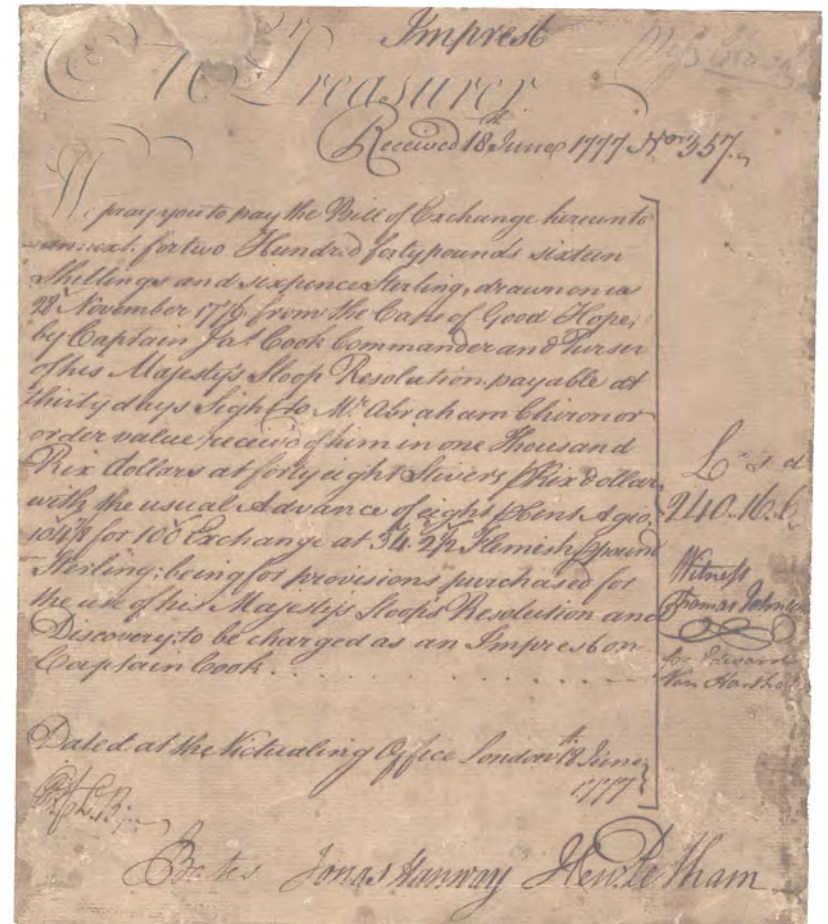 Imprest
Treasurer
Received 18th June 1777 No. 357.
We pray you to pay the Bill of Exchange hereunto
annext. for two Hundred forty pounds sixteen
Shillings and sixpence Sterling, drawn on us
28 November 1776 from the Cape of Good Hope;
by Captain Jas. Cook Commander and Purser
of his Majesty's Sloop Resolution payable at
thirty days Sight to Mr. Abraham Chiron or
order value receiv'd of him in one Thousand
Rix dollars at forty eight Stivers p Rix dollar,
with the usual Advance of eight p Cent Agio,
for 100 Exchange at 34. 2½ Flemish p pound
Sterling; being for provisions purchased for
the use of his Majesty's Sloops Resolution and
Discovery; to be charged as an Imprest on
Captain Cook . . . . . . . . . . . .
L s d
240..16..6
Witness
Thomas
for Edward
Van
Dated at the Victualing Office London 18th June
1777
Bates Jonas Hanway Hen. Pelham